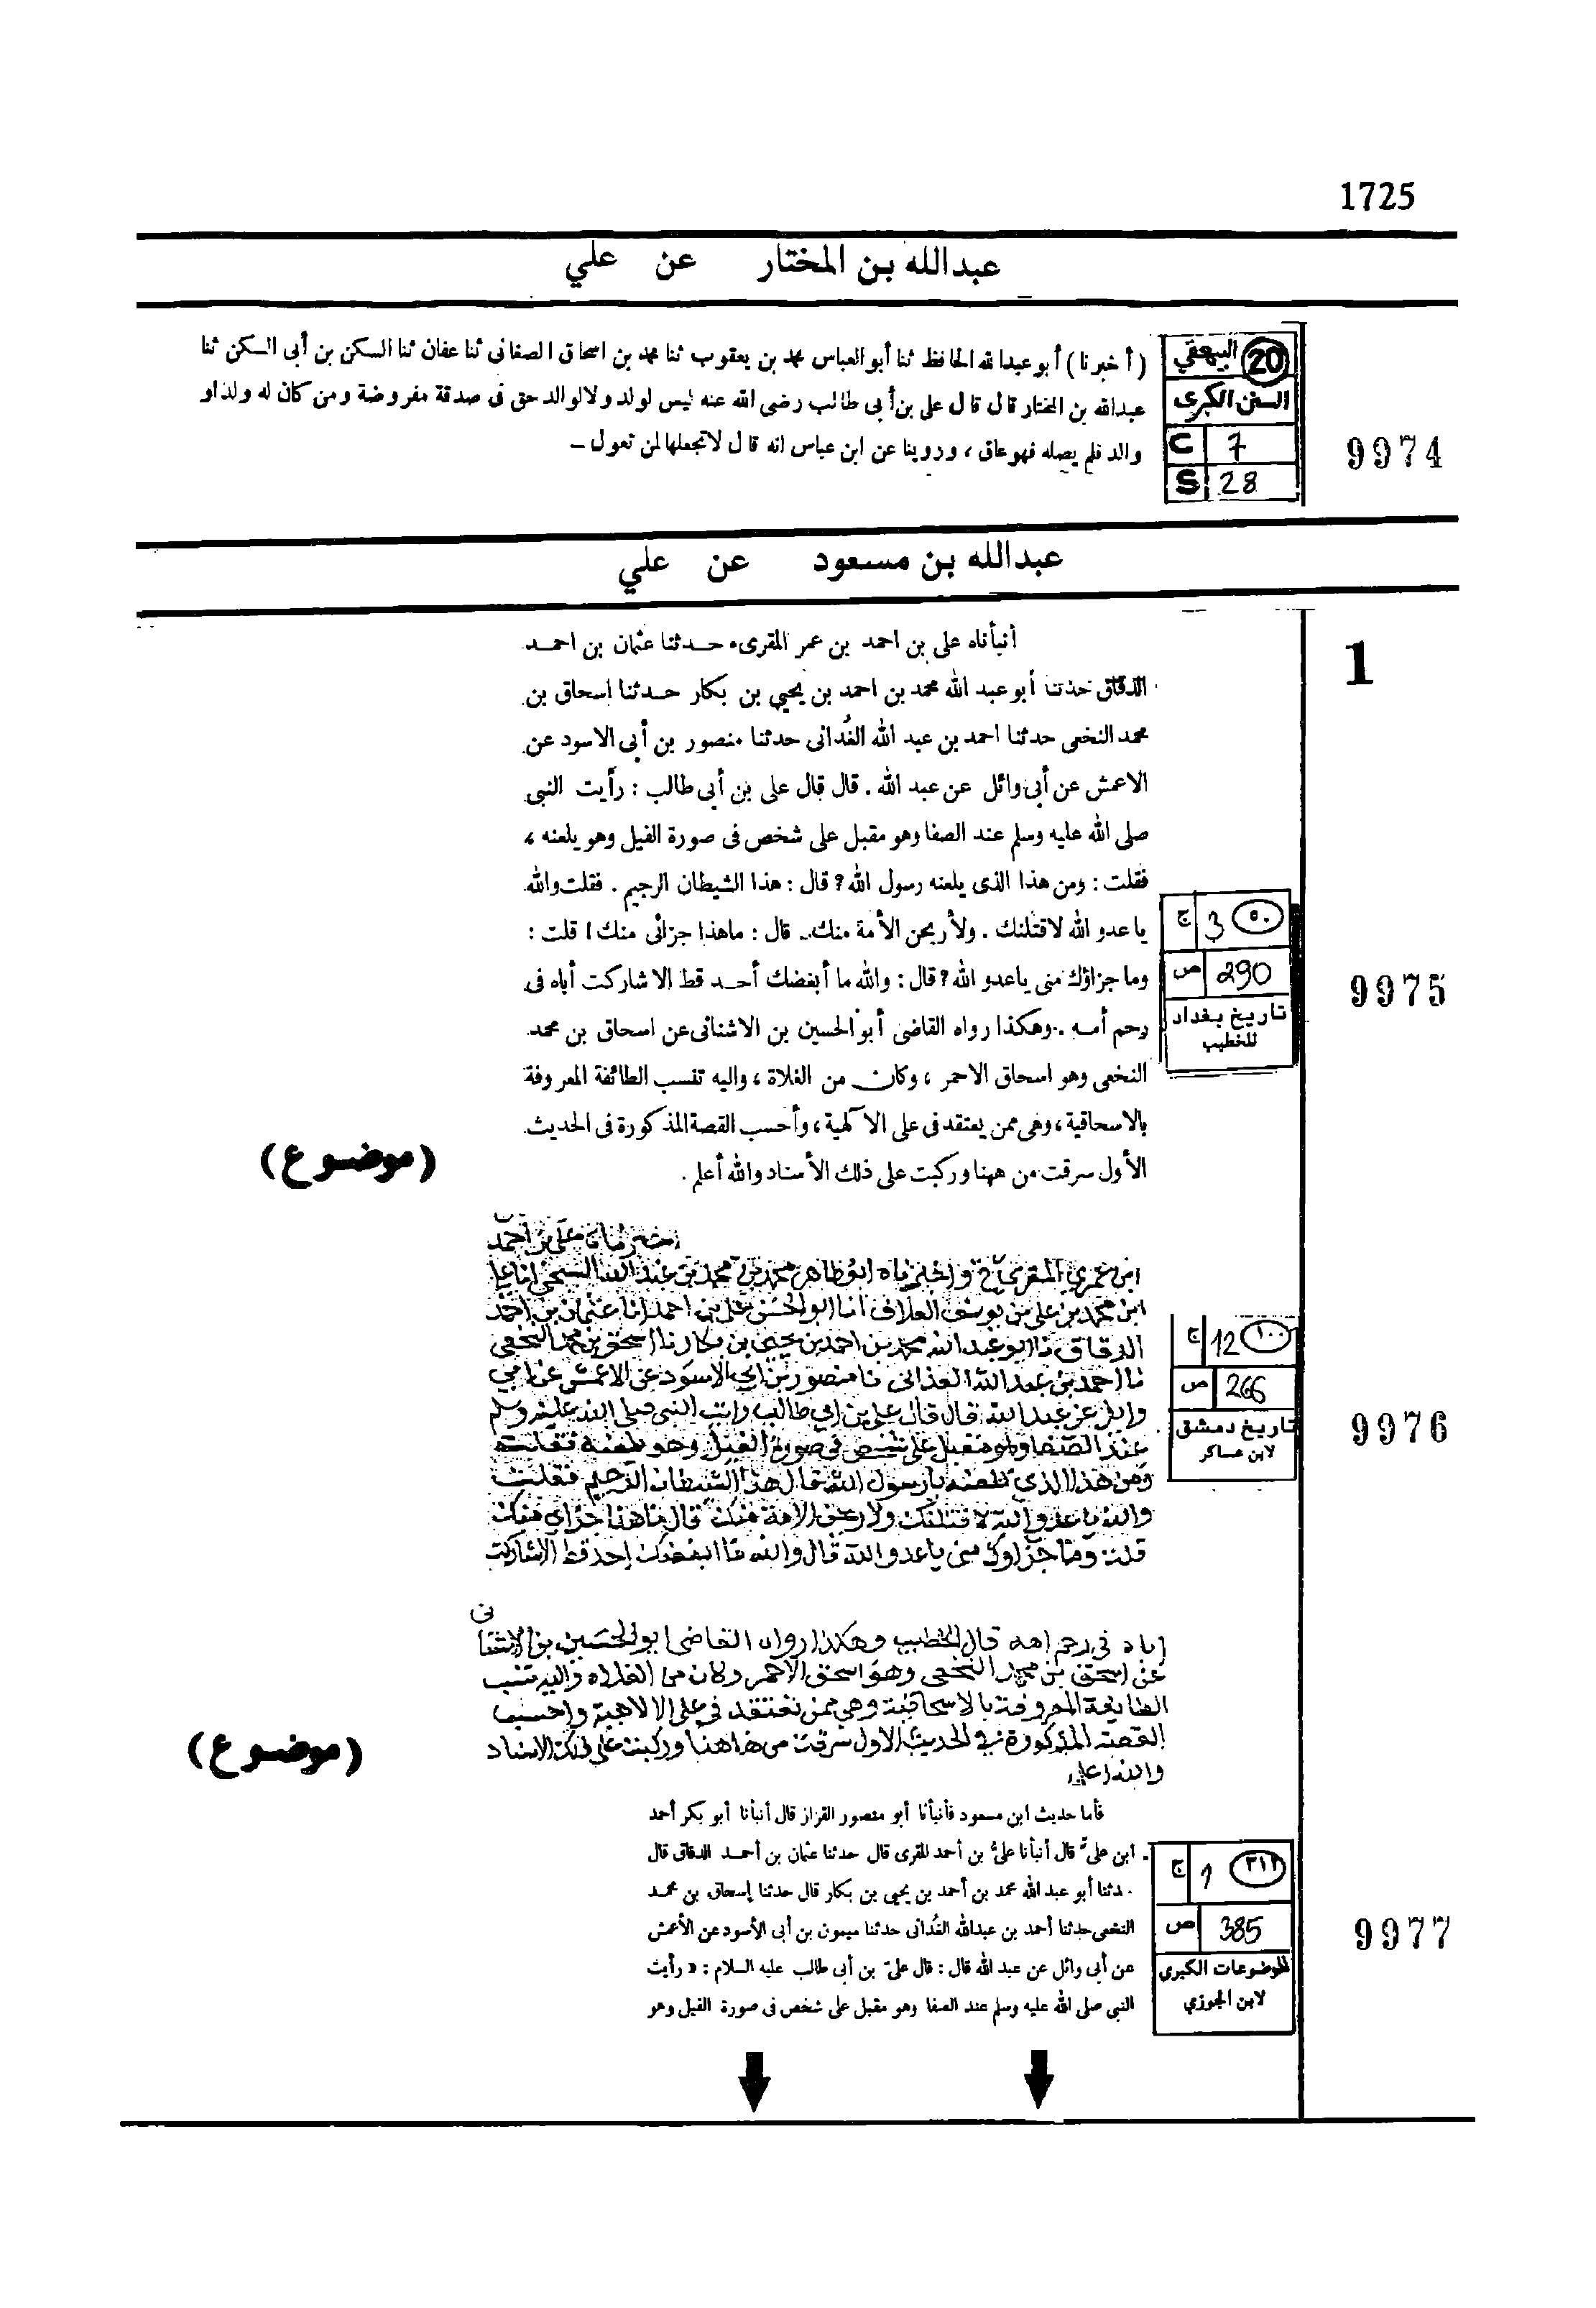 1725
عبدالله بن المختار عن علي
(أخبرنا) أبو عبدالله الحافظ ثنا أبو العباس محمد بن يعقوب ثنا محمد بن اسحاق الصغانى ثنا عفان ثنا السكن بن أبى السكن ثنا
عبدالله بن المختار قال قال على بن أبى طالب رضى الله عنه ليس لولد ولا لوالد حق فى صدقة مفروضة ومن كان له ولد او
والد فلم يصله فهو عاق ، وروينا عن ابن عباس انه قال لا تجعلها لمن تعول –
20 البيهقي
السنن الكبرى
C 7
S 28
9974
عبدالله بن مسعود عن علي
1
أنبأناه على بن احمد بن عمر المقرىء حدثنا عثمان بن احمد
الدقاق حدثنا أبو عبد الله محمد بن احمد بن يحيى بن بكار حدثنا إسحاق بن
محمد النخعى حدثنا احمد بن عبد الله الغُدانى حدثنا منصور بن أبى الاسود عن
الاعمش عن أبى وائل عن عبد الله . قال قال على بن أبى طالب : رأيت النبى
صلى الله عليه وسلم عند الصفا وهو مقبل على شخص فى صورة الفيل وهو يلعنه ،
فقلت : ومن هذا الذى يلعنه رسول الله ؟ قال : هذا الشيطان الرجيم . فقلت والله
يا عدو الله لاقتلنك . ولأريحن الأمة منك . قال : ما هذا جزائى منك ! قلت :
وما جزاؤك منى يا عدو الله ؟ قال : والله ما أبغضك أحد قط الا شاركت أباه فى
رحم أمه . وهكذا رواه القاضى أبو الحسين بن الاشنانى عن اسحاق بن محمد
النخعى وهو اسحاق الاحمر ، وكان من الغلاة ، واليه تنسب الطائفة المعروفة
بالاسحاقية ، وهى ممن يعتقد فى على الآلهية ، وأحسب القصة المذكورة فى الحديث
الأول سرقت من ههنا وركبت على ذلك الأسناد والله أعلم .
(موضوع)
٥٠ 3 ج
290 ص
تاريخ بغداد
للخطيب
9975
اخبرناه على بن احمد
ابن عمر المقرى ح واخبرناه ابو طاهر محمد بن محمد بن عبد الله السنجى انا على
ابن محمد بن على بن يوسف العلاف انا ابو الحسن على بن احمد انا عثمان بن احمد
الدقاق نا ابو عبد الله محمد بن احمد بن يحيى بن بكار نا اسحق بن محمد النخعى
نا احمد بن عبد الله الغدانى نا منصور بن ابى الاسود عن الاعمش عن ابى
وايل عن عبد الله قال قال على بن ابى طالب رايت النبى صلى الله عليه وسلم
عند الصفا وهو مقبل على شخص فى صورة الفيل وهو يلعنه فقلت
ومن هذا الذى تلعنه يا رسول الله قال هذا الشيطان الرجيم فقلت
والله يا عدو الله لاقتلنك ولاريحن الامة منك قال ما هذا جزاى منك
قلت وما جزاوك منى يا عدو الله قال والله ما ابغضك احد قط الا شاركت
اباه فى رحم امه قال الخطيب وهكذا رواه القاضى ابو الحسين بن الاشنانى
عن اسحق بن محمد النخعى وهو اسحق الاحمر وكان من الغلاه واليه تنسب
الطايفة المعروفة بالاسحاقية وهى ممن تعتقد فى على الالاهية واحسب
القصة المذكورة فى الحديث الاول سرقت من هاهنا وركبت على ذلك الاسناد
والله اعلم
(موضوع)
١٠٠ 12 ج
266 ص
تاريخ دمشق
لابن عساكر
9976
فأما حديث ابن مسعود فأنبأنا أبو منصور القزاز قال أنبأنا أبو بكر أحمد
ابن علىّ قال أنبأنا علىّ بن أحمد المقرى قال حدثنا عثمان بن أحمد الدقاق قال
حدثنا أبو عبد الله محمد بن أحمد بن يحيى بن بكار قال حدثنا إسحاق بن محمد
النخعى حدثنا أحمد بن عبدالله الغُدانى حدثنا ميمون بن أبى الأسود عن الأعمش
عن أبى وائل عن عبد الله قال : قال علىّ بن أبى طالب عليه السلام : « رأيت
النبى صلى الله عليه وسلم عند الصفا وهو مقبل على شخص فى صورة الفيل وهو
٣١٢ 1 ج
385 ص
الموضوعات الكبري
لابن الجوزي
9977